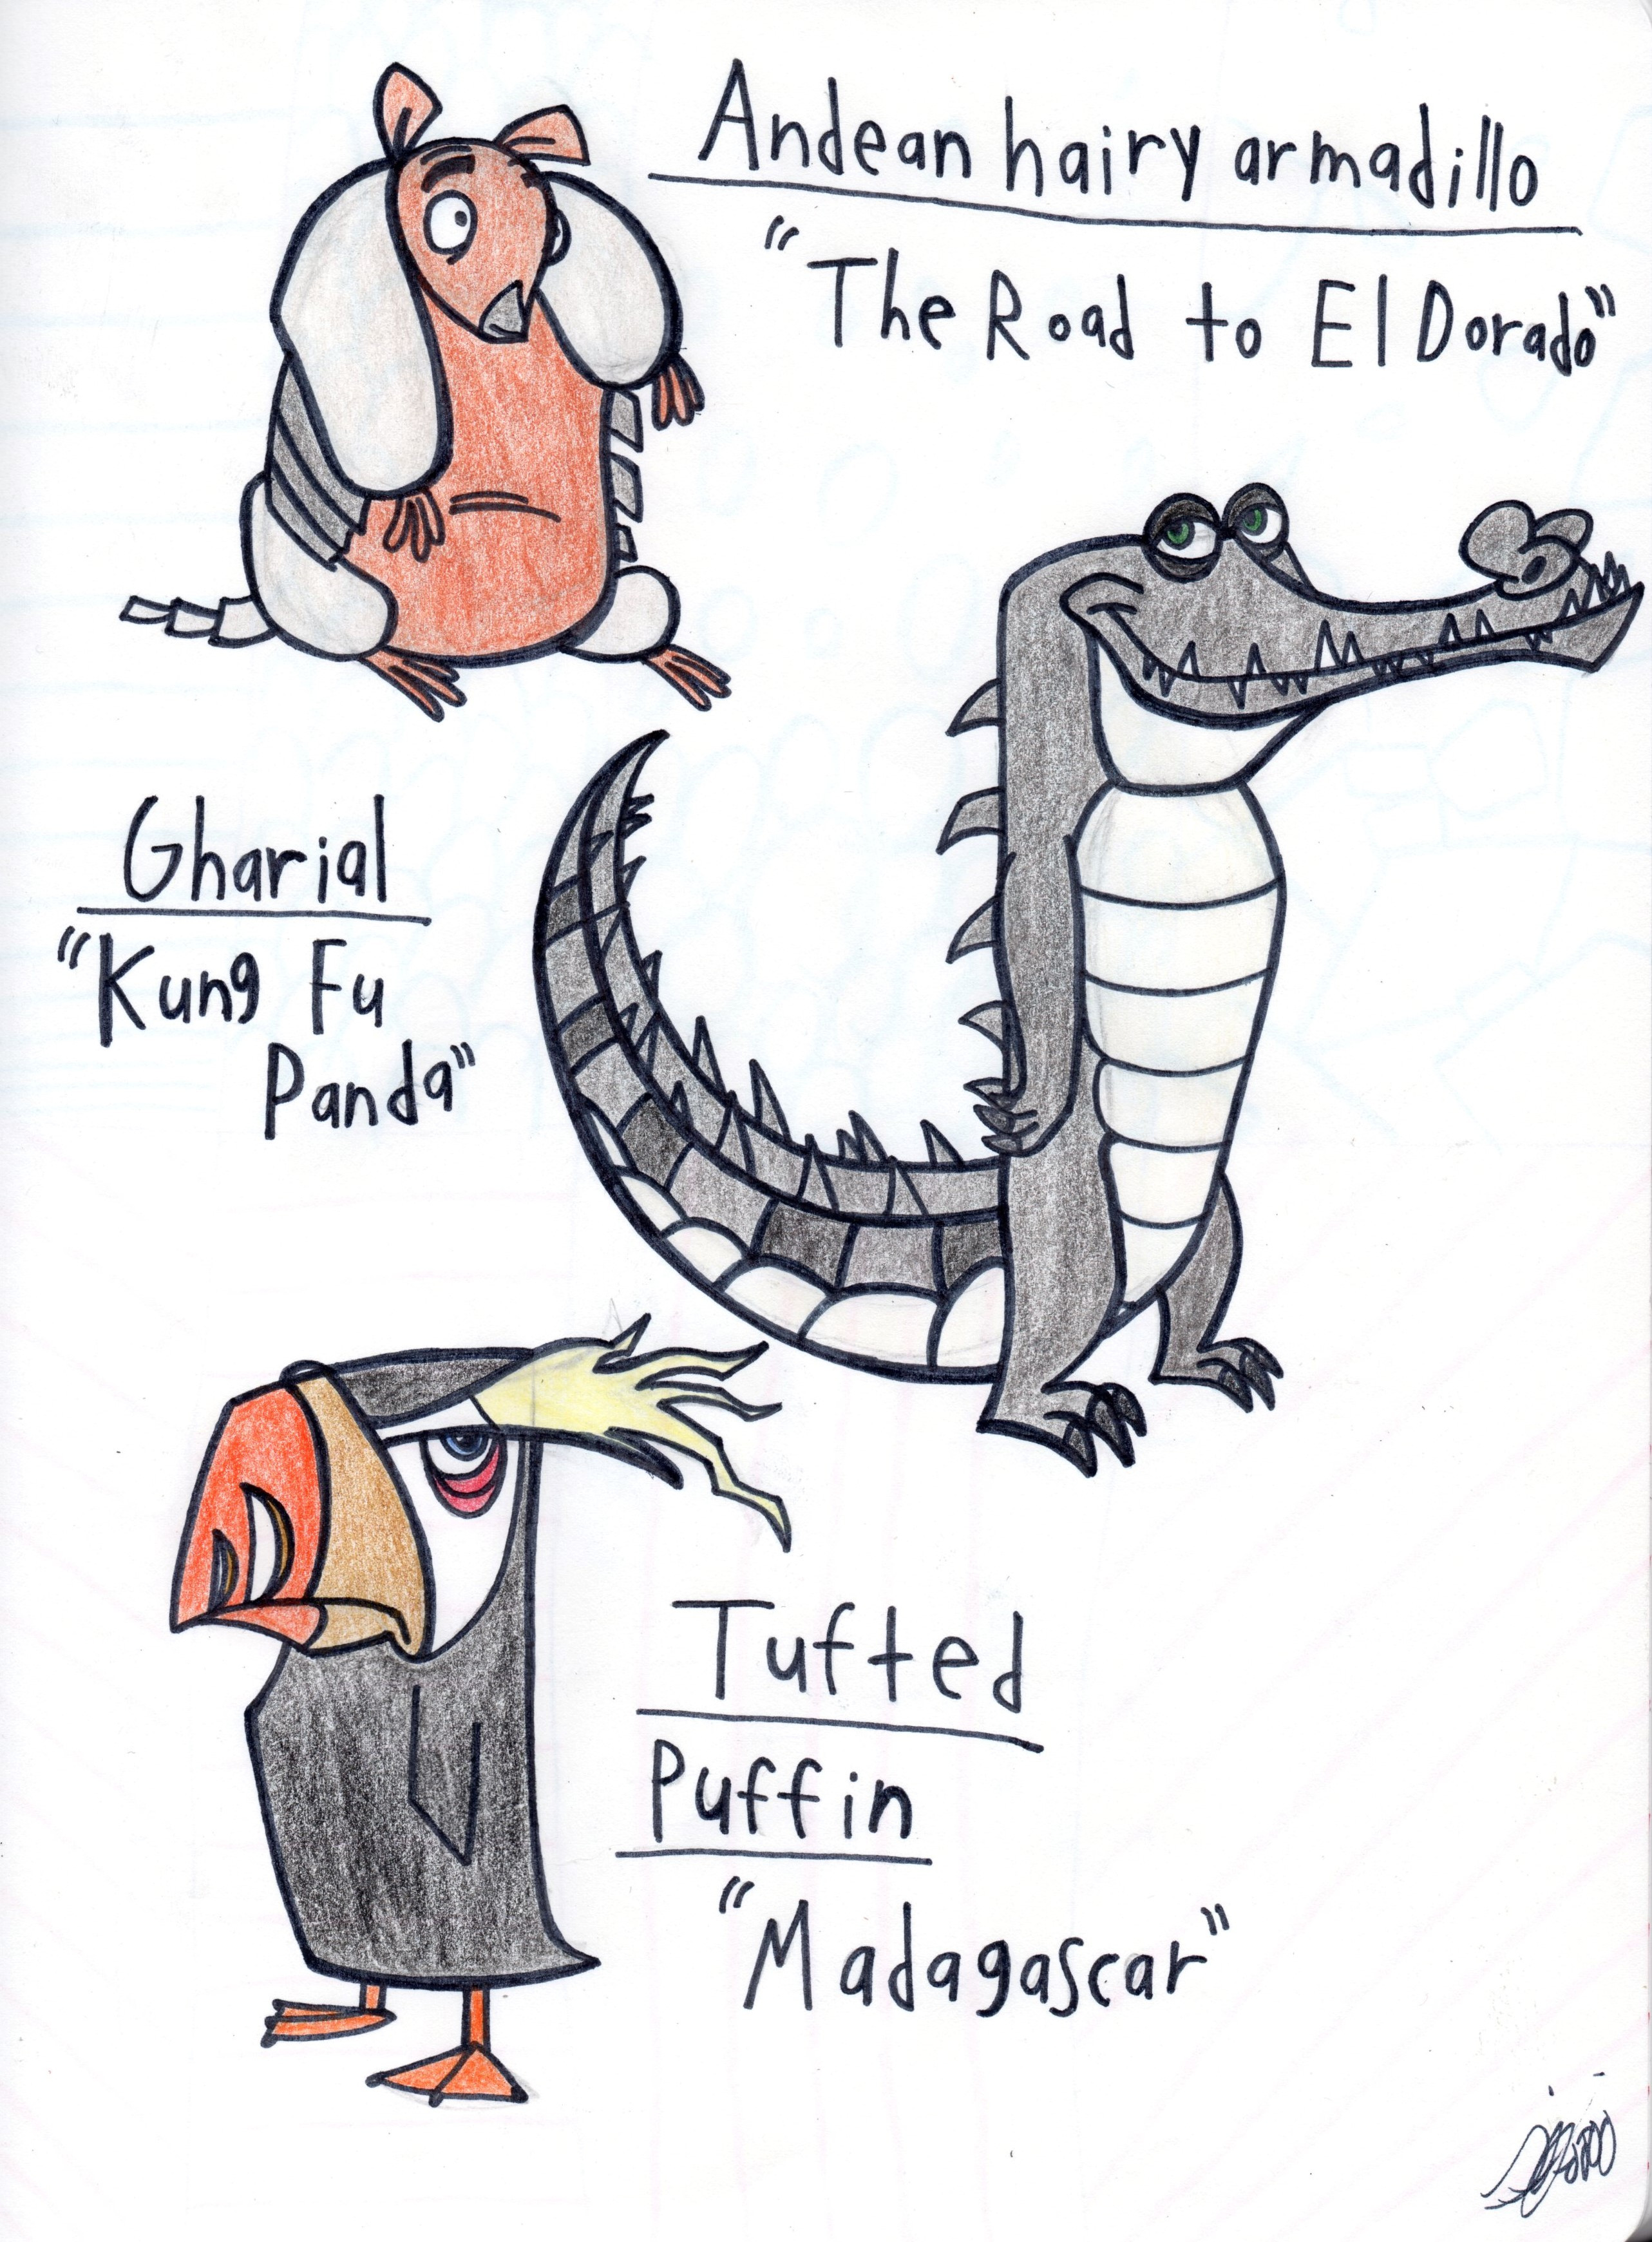 Andean hairy armadillo
"The Road to El Dorado"
Gharial
"Kung Fu
Panda"
Tufted
Puffin
"Madagascar"